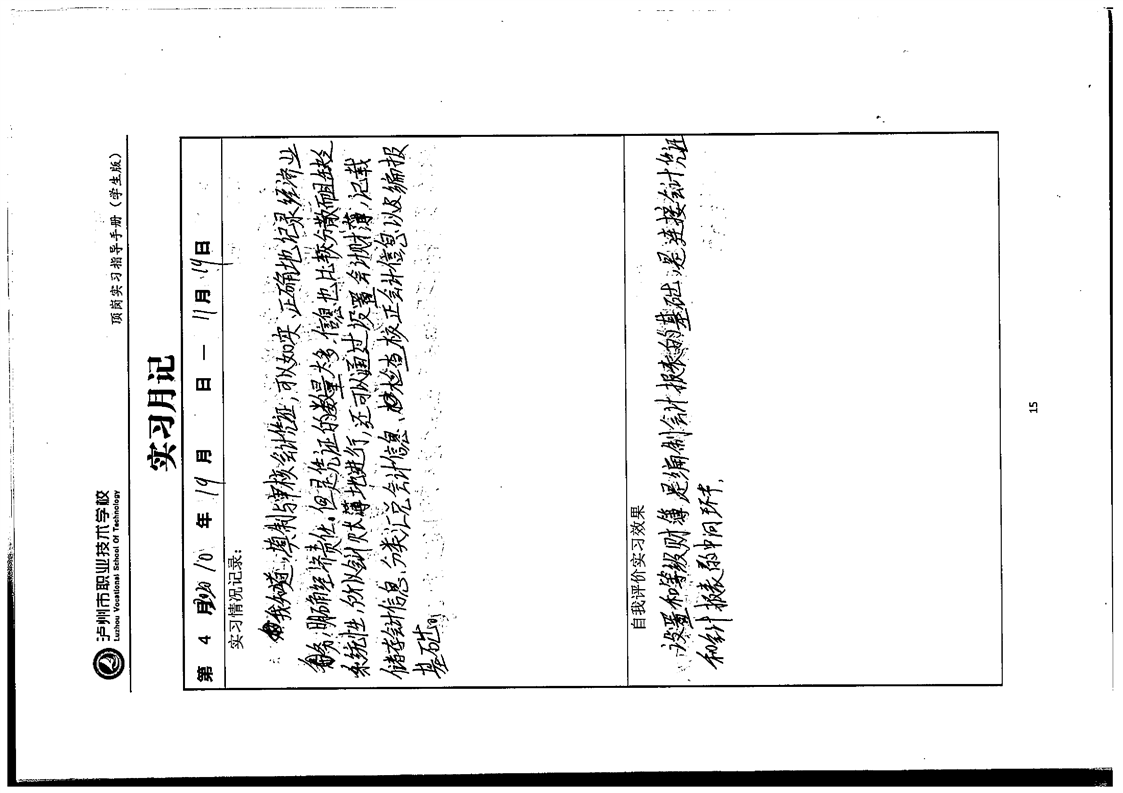 泸州市职业技术学校
Luzhou Vocational School Of Technology
顶岗实习指导手册（学生版）
实习月记
第 4 月 年 19 月 日 — 11月 19日
实习情况记录：
我知道，填制与审核会计凭证，可以如实、正确地纪录经济业
务，明确经济责任。但是凭证的数量太多，信息也比较分散而且缺乏
系统性，所以会计账薄地进行，还可以通过设置会计财薄，记载
储存会计信息、分类汇总会计信息、检查核正会计信息以及编报
基础。
自我评价实习效果
设置和等级财薄，是编制会计报表的基础，是连接会计凭证
和会计报表的中间环节。
15